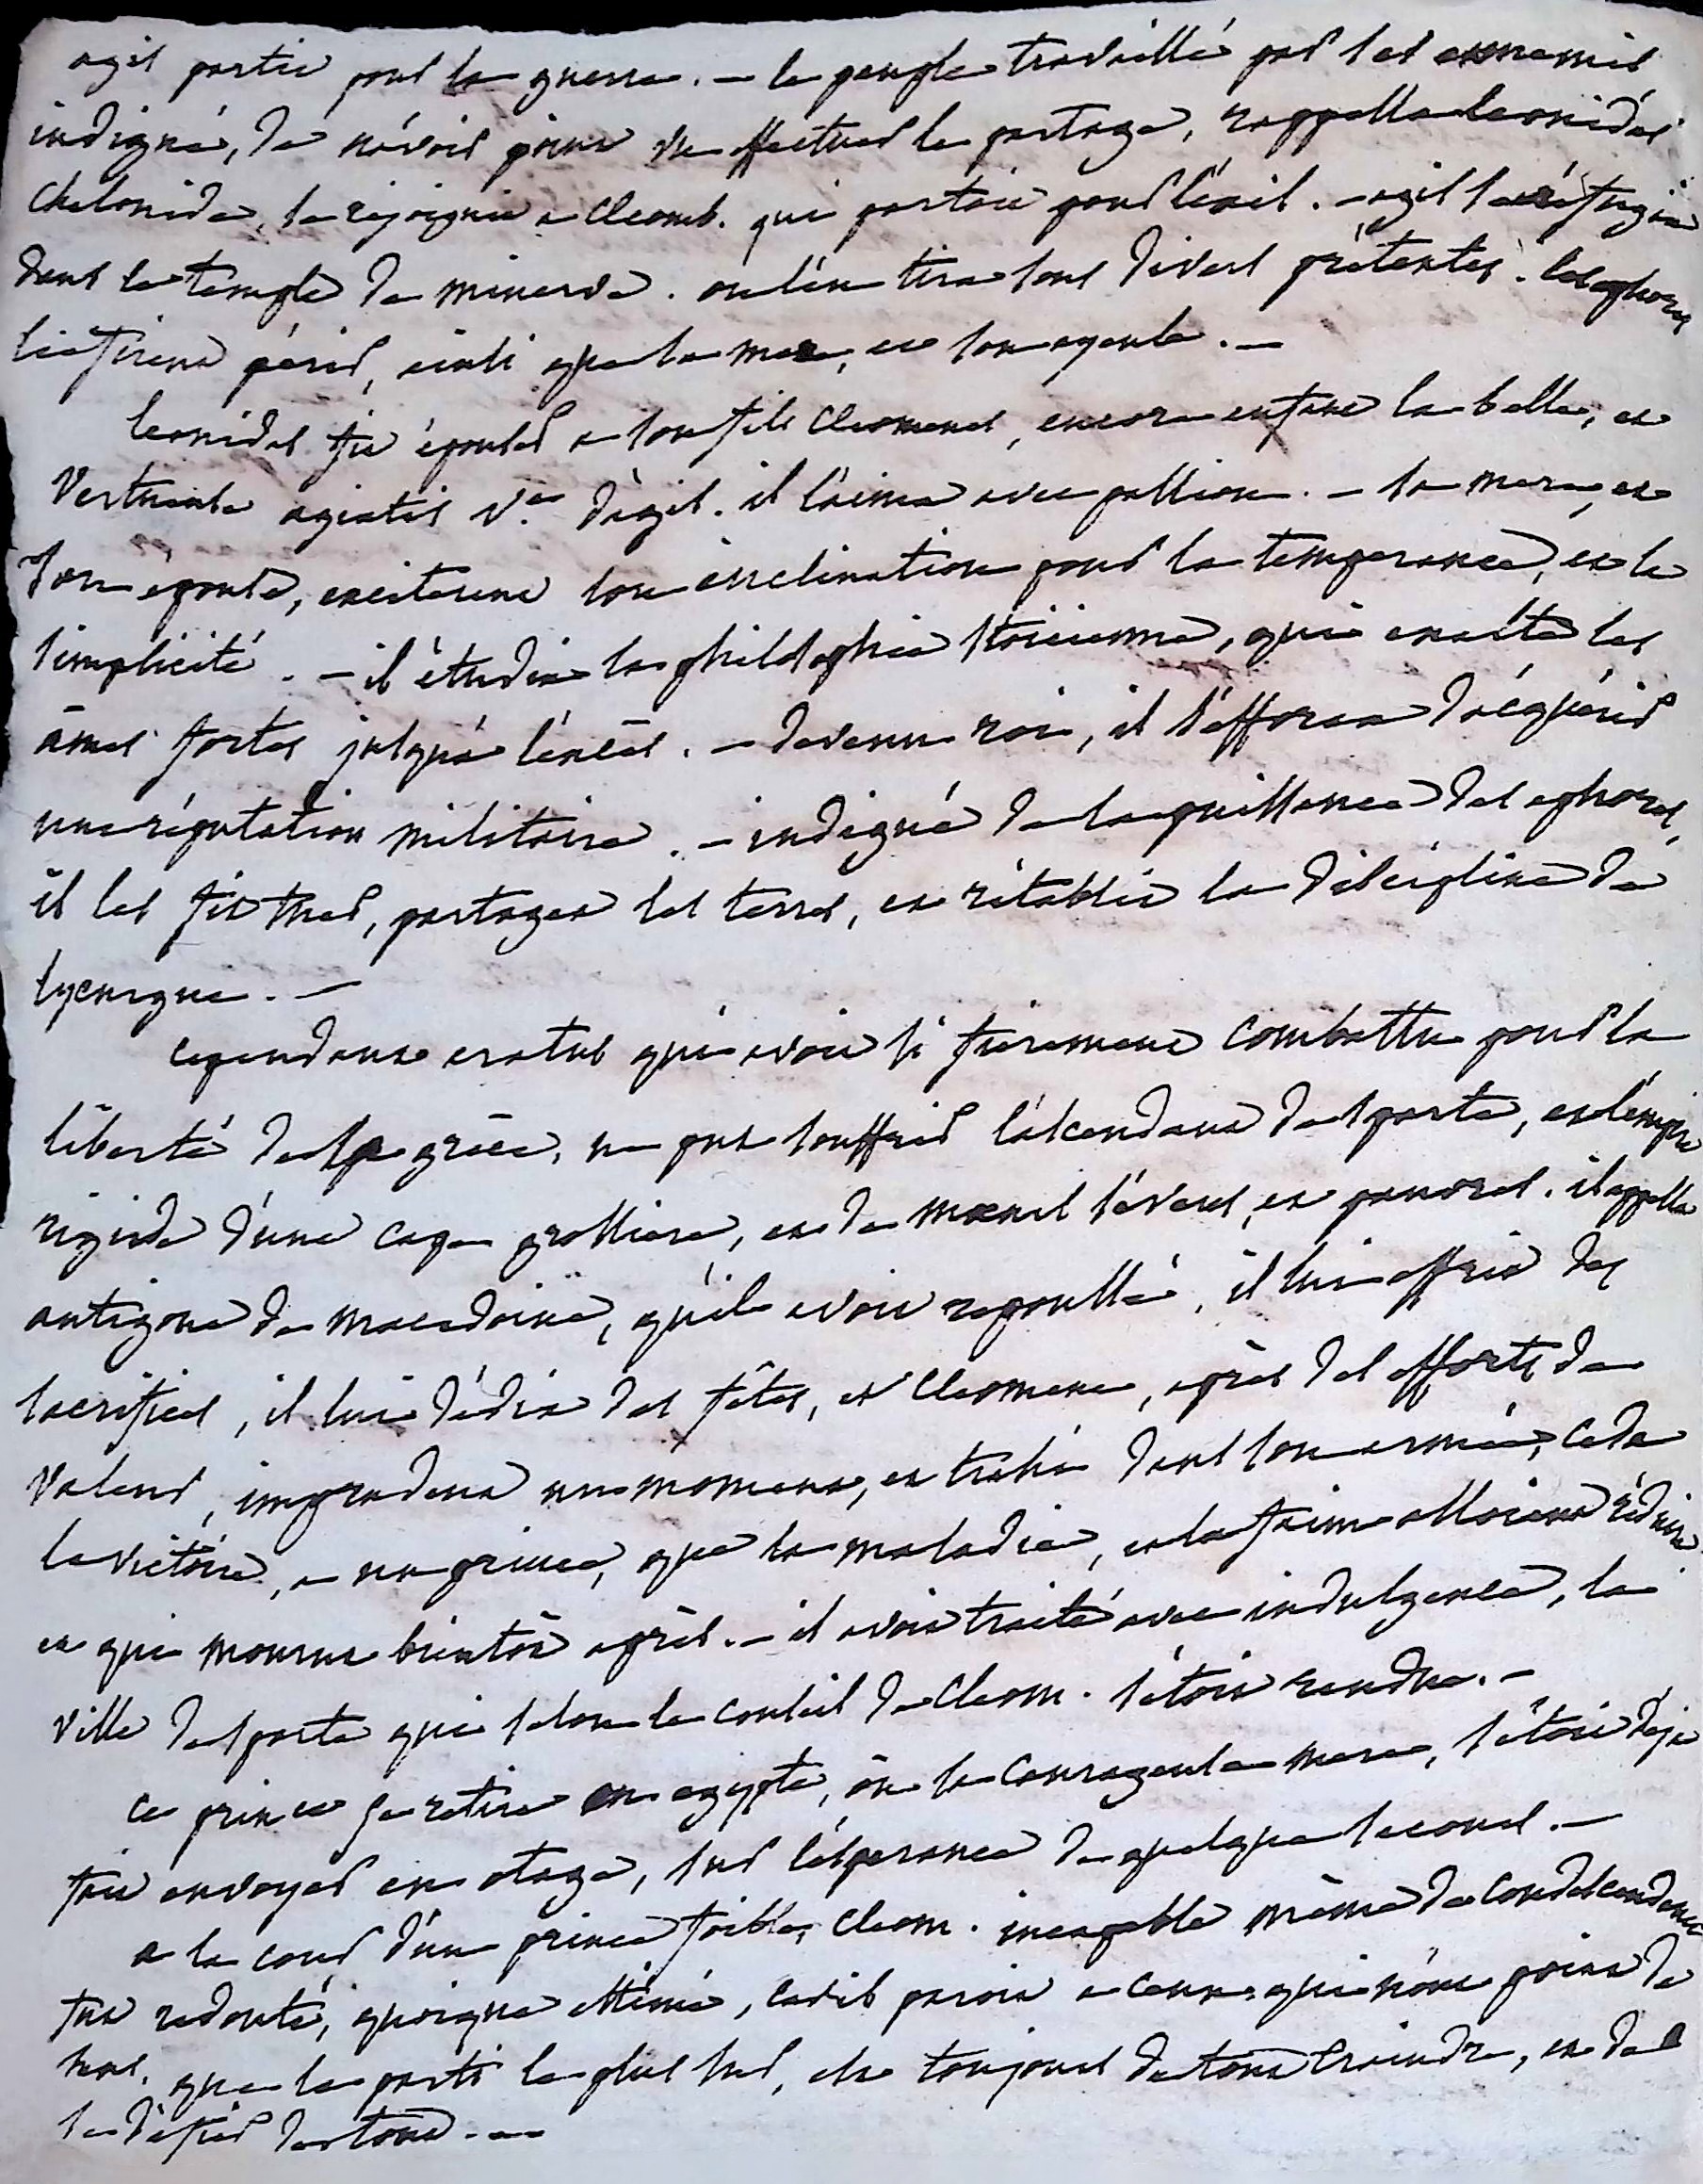 agis partit pour la guerre. – le peuple travaillé par ses ennemis
indigné, de n'avoir point vu effectuer le partage, rappella leonidas
Chelonide, se rejoignit a Cleomb. qui partoit pour l'exil. – agis se réfugia
dans le temple de minerve. on l'en tira sous divers prétextes. les ephores
le firent périr, ainsi que sa mere, et son ayeule. –
leonidas fit épouser a son fils Cleomenes, encore enfant la belle, et
Vertueuse agiatis v.e d'agis. il l'aima avec passion. – sa mere, et
son épouse, exciterent son inclination pour la temperance, et la
simplicité. – il étudia la philosophie stoïcienne, qui exalte les
âmes fortes jusqu'à l'excès. – devenu roi, il s'efforca d'acquérir
une réputation militaire. – indigné de la puissance des ephores,
il les fit tuer, partagea les terres, et rétablit la discipline de
lycurgue. –
cependant aratus qui avoit si fierement combattu pour la
liberté de la grèce, ne put souffrir l'ascendant de sparte, et l'empire
rigide d'une cape grossiere, et de mœurs séveres, et pauvres. il appella
antigone de macedoine, qu'il avoit repoussé, il lui offrit des
sacrifices, il lui dédia des fêtes, et Cleomene, après des efforts de
valeur, imprudent un moment, et trahi dans son armée, ceda
la victoire, a un prince, que la maladie, et la faim alloient réduire
et qui mourut bientôt après. – il avoit traité avec indulgence, la
ville de sparte qui selon le conseil de Cleom. s'étoit rendue. –
ce prince se retira en egypte, où sa courageuse mere, s'étoit deja
fait envoyer en otage, sur l'espérance de quelque secours. –
a la cour d'un prince foible, Cleom. incapable même de condescendance
fut redouté, quoique estimé, car il paroit a ceux qui n'ont point de
sens, que le parti le plus sur, est toujours de tout craindre, et de
se défier de tout. –